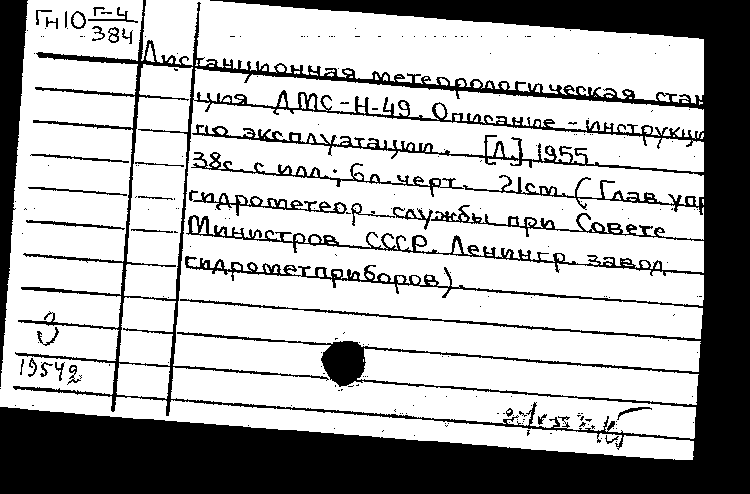 Гн10 Г-4/384
Дистанционная метеорологическая стан
ция ДМС-Н-49. Описание-инструкци
по эксплуатации. [Л.], 1955.
38с. с илл.; 6л. черт. 21cm. (Глав упр
гидрометеор. службы при Совете
Министров СССР. Ленингр. завод
гидрометприборов).
19542